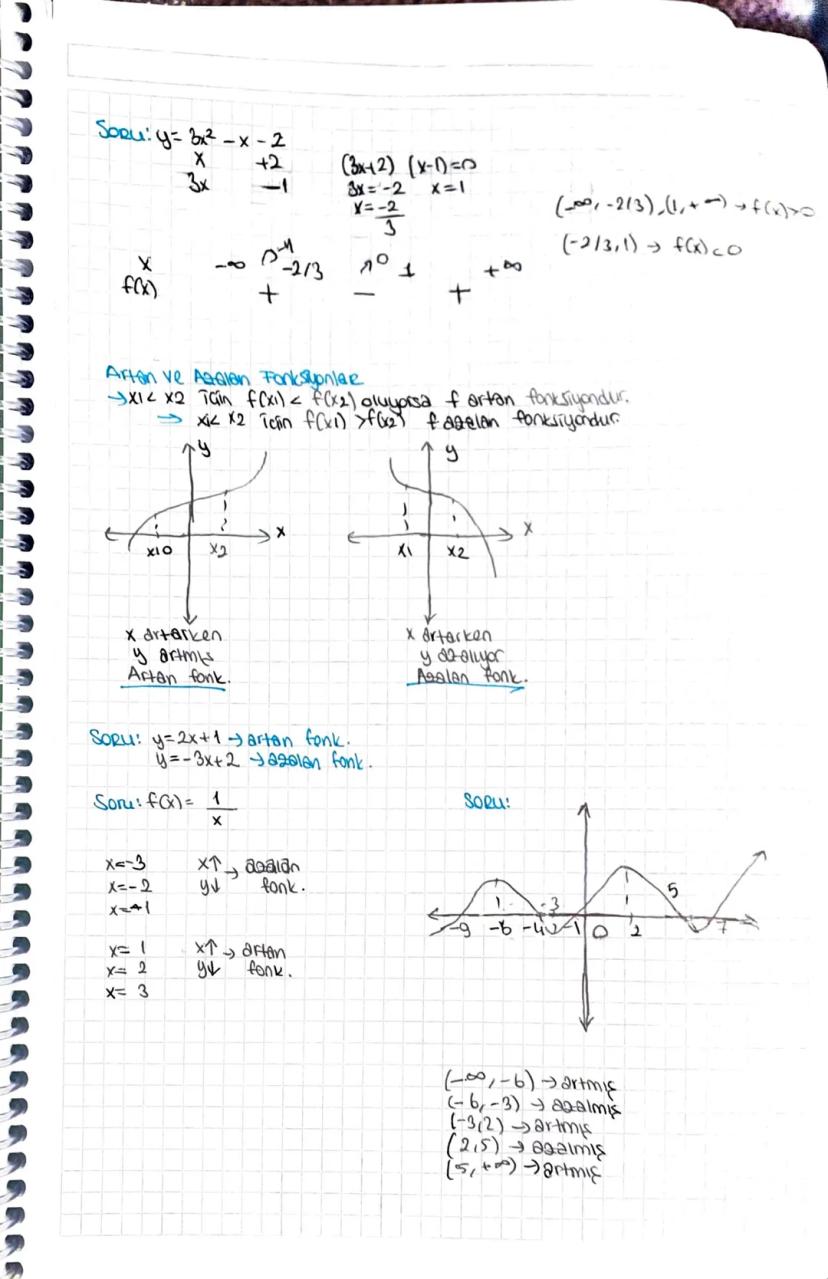 Soru: y= 3x² - x - 2
x +2 (3x+2) (x-1)=0
3x -1 3x=-2 x=1
x=-2/3
(-∞, -2/3),(1,+∞) → f(x)>0
(-2/3,1) → f(x)<0
x -∞ -2/3 0 1 +∞
f(x) + - +
Artan ve Azalan Fonksiyonlar
→x1< x2 için f(x1) < f(x2) oluyorsa f artan fonksiyondur.
→ x1< x2 için f(x1) >f(x2) f azalan fonksiyondur.
y y
x x
x1 0 x2 x1 x2
x artarken x artarken
y artmış y azalıyor
Artan fonk. Azalan fonk.
Soru: y=2x+1 → artan fonk.
y=-3x+2 → azalan fonk.
Soru: f(x)= 1/x
x=-3 x↑ → azalan
x=-2 y↓ fonk.
x=-1
x= 1 x↑ → artan
x= 2 y↓ fonk.
x= 3
Soru:
-3 5
-9 -6 -4 -1 0 2 7
(-∞,-6) → artmış
(-6,-3) → azalmış
(-3,2) → artmış
(2,5) → azalmış
(5,+∞) → artmış